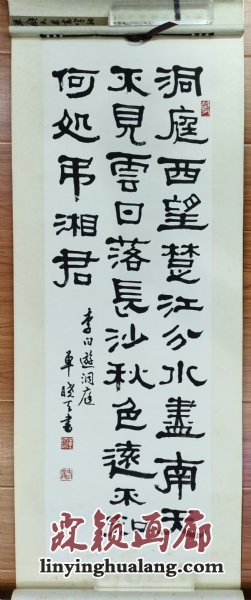 洞庭西望楚江分水盡南天
不見雲日落長沙秋色遠不知
何処弔湘君
李白遊洞庭
單曉天書
霖颖画廊
linyinghualang.com